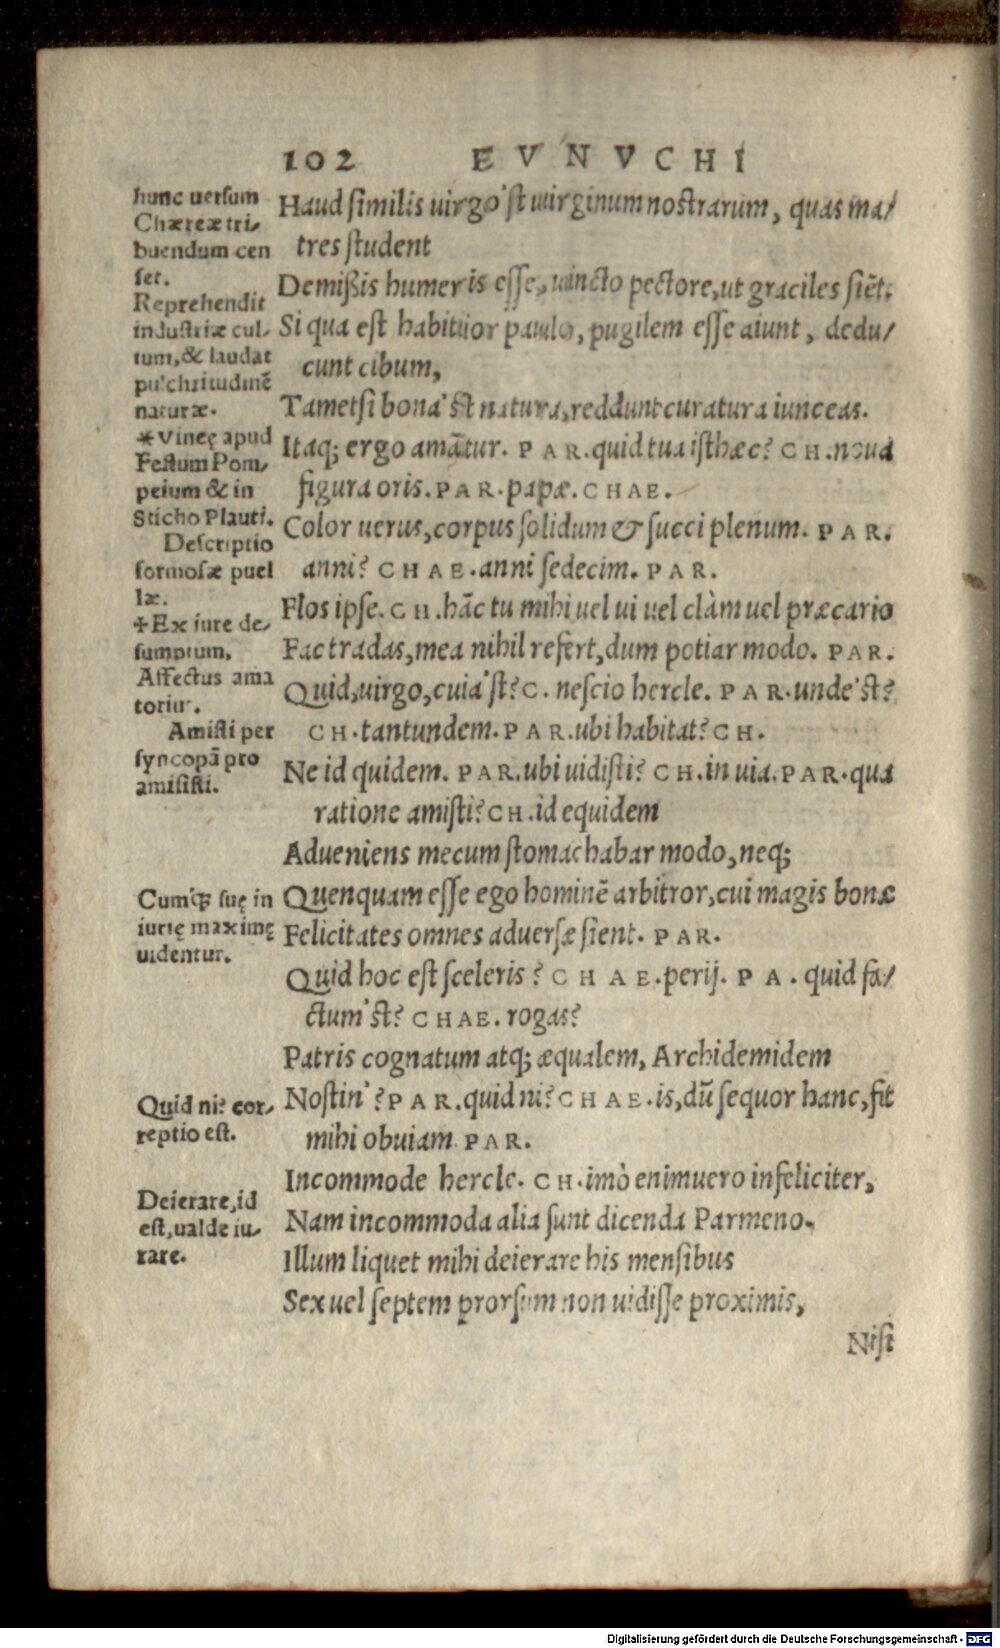 102 EVNVCHI
hunc uersum
Chæreæ tri/
buendum cen
set.
Reprehendit
industriæ cul/
tum, & laudat
pulchritudinē
naturæ.
*Vinęę apud
Festum Pom/
peium & in
Sticho Plauti.
Descriptio
formosæ puel
læ.
✢Ex iure de/
sumptum.
Affectus ama
torius.
Amisti per
syncopā pro
amisisti.
Cumq; suę in
iurię maximę
uidentur.
Quid ni? cor/
reptio est.
Deierare, id
est, ualde iu/
rare.
Haud similis uirgo'st uirginum nostrarum, quas ma/
tres student
Demißis humeris esse, uincto pectore, ut graciles siēt.
Si qua est habitior paulo, pugilem esse aiunt, dedu/
cunt cibum,
Tametsi bona'st natura, reddunt curatura iunceas.
Itaq; ergo amātur. PAR. quid tua isthæc? CH. noua
figura oris. PAR. papæ. CHAE.
Color uerus, corpus solidum & succi plenum. PAR.
anni? CHAE. anni sedecim. PAR.
Flos ipse. CH. hāc tu mihi uel ui uel clàm uel præcario
Fac tradas, mea nihil refert, dum potiar modo. PAR.
Quid, uirgo, cuia'st? C. nescio hercle. PAR. unde'st?
CH. tantundem. PAR. ubi habitat? CH.
Ne id quidem. PAR. ubi uidisti? CH. in uia. PAR. qua
ratione amisti? CH. id equidem
Adueniens mecum stomachabar modo, neq;
Quenquam esse ego hominē arbitror, cui magis bonæ
Felicitates omnes aduersæ sient. PAR.
Quid hoc est sceleris? CHAE. perij. PA. quid fa/
ctum'st? CHAE. rogas?
Patris cognatum atq; æqualem, Archidemidem
Nostin'? PAR. quid ni? CHAE. is, dū sequor hanc, fit
mihi obuiam PAR.
Incommode hercle. CH. imò enimuero infeliciter,
Nam incommoda alia sunt dicenda Parmeno.
Illum liquet mihi deierare his mensibus
Sex uel septem prorsum non uidisse proximis,
Nisi
Digitalisierung gefördert durch die Deutsche Forschungsgemeinschaft - DFG